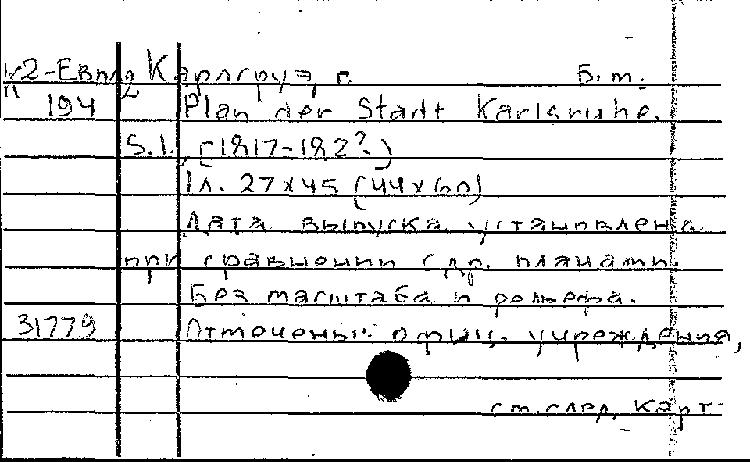 К2-Евпл2 Карлсруэ, г. Б.м.
194 Plan der Stadt Karlsruhe.
S.l., (1817-182?)
1л. 27х45 (44х60)
Дата выпуска установлена
при сравнении с др. планами.
Без масштаба и рельефа.
31779 Отмечены: офиц. учреждения,
см. след. карт.